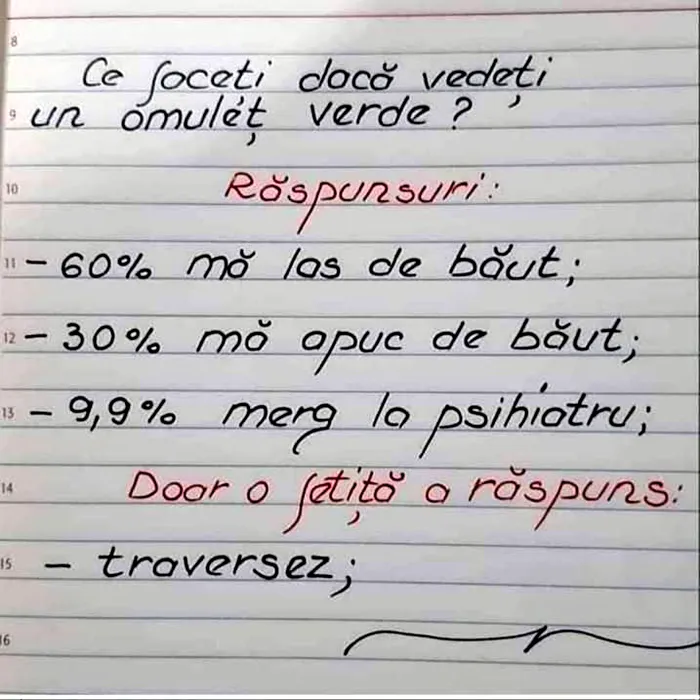 8
Ce faceți dacă vedeți
9 un omuleț verde?
10 Răspunsuri:
11 - 60% mă las de băut;
12 - 30% mă apuc de băut;
13 - 9,9% merg la psihiatru;
14 Doar o fetiță a răspuns:
15 - traversez;
16